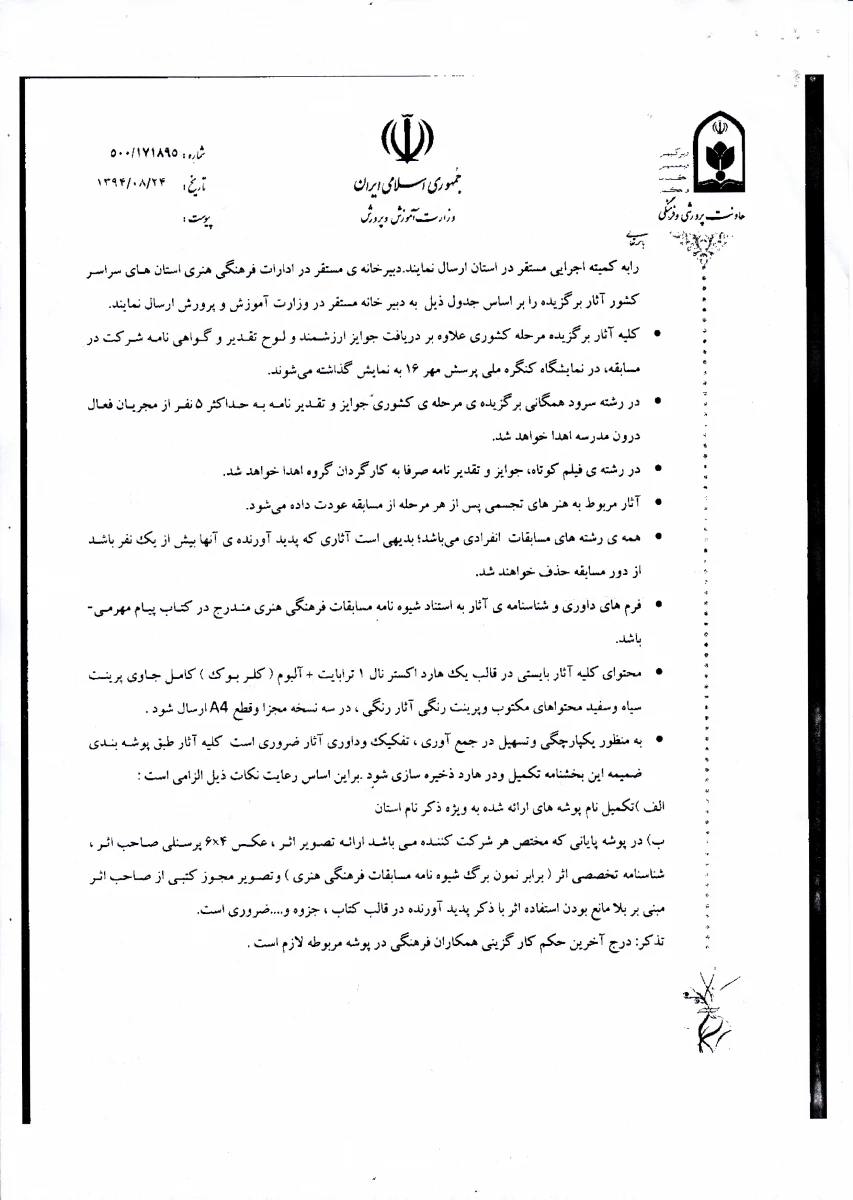 شماره: ۵۰۰/۱۷۱۸۹۵
تاریخ: ۱۳۹۴/۰۸/۲۴
پیوست:
جمهوری اسلامی ایران
وزارت آموزش و پرورش
معاونت پرورشی و فرهنگی
باسمه تعالی
رابه کمیته اجرایی مستقر در استان ارسال نمایند.دبیرخانه ی مستقر در ادارات فرهنگی هنری استان های سراسر
کشور آثار برگزیده را بر اساس جدول ذیل به دبیر خانه مستقر در وزارت آموزش و پرورش ارسال نمایند.
• کلیه آثار برگزیده مرحله کشوری علاوه بر دریافت جوایز ارزشمند و لوح تقدیر و گواهی نامه شرکت در
مسابقه، در نمایشگاه کنگره ملی پرسش مهر ۱۶ به نمایش گذاشته می‌شوند.
• در رشته سرود همگانی برگزیده ی مرحله ی کشوری جوایز و تقدیر نامه به حداکثر ۵ نفر از مجریان فعال
درون مدرسه اهدا خواهد شد.
• در رشته ی فیلم کوتاه، جوایز و تقدیر نامه صرفا به کارگردان گروه اهدا خواهد شد.
• آثار مربوط به هنر های تجسمی پس از هر مرحله از مسابقه عودت داده می‌شود.
• همه ی رشته های مسابقات انفرادی می‌باشد؛ بدیهی است آثاری که پدید آورنده ی آنها بیش از یک نفر باشد
از دور مسابقه حذف خواهند شد.
• فرم های داوری و شناسنامه ی آثار به استناد شیوه نامه مسابقات فرهنگی هنری مندرج در کتاب پیام مهرمی-
باشد.
• محتوای کلیه آثار بایستی در قالب یک هارد اکستر نال ۱ ترابایت + آلبوم ( کلر بوک ) کامل جاوی پرینت
سیاه وسفید محتواهای مکتوب وپرینت رنگی آثار رنگی ، در سه نسخه مجزا وقطع A4 ارسال شود .
• به منظور یکپارچگی وتسهیل در جمع آوری ، تفکیک وداوری آثار ضروری است کلیه آثار طبق پوشه بندی
ضمیمه این بخشنامه تکمیل ودر هارد ذخیره سازی شود .براین اساس رعایت نکات ذیل الزامی است :
الف )تکمیل نام پوشه های ارائه شده به ویژه ذکر نام استان
ب) در پوشه پایانی که مختص هر شرکت کننده می باشد ارائه تصویر اثر ، عکس ۴×۶ پرسنلی صاحب اثر ،
شناسنامه تخصصی اثر ( برابر نمون برگ شیوه نامه مسابقات فرهنگی هنری ) وتصویر مجوز کتبی از صاحب اثر
مبنی بر بلا مانع بودن استفاده اثر با ذکر پدید آورنده در قالب کتاب ، جزوه و....ضروری است.
تذکر: درج آخرین حکم کار گزینی همکاران فرهنگی در پوشه مربوطه لازم است .